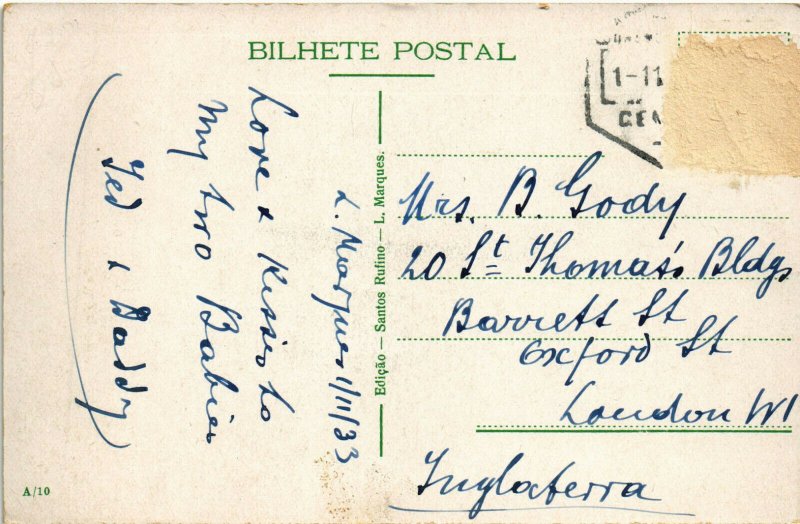 BILHETE POSTAL
1-11
CEN
L. Marques 1/11/33
Love & Kisses to
My two Babies
Ted & Daddy
Edição — Santos Rufino — L. Marques.
Mrs. B. Gody
20 St Thomas's Bldgs
Barrett St
Oxford St
London W1
Inglaterra
A/10